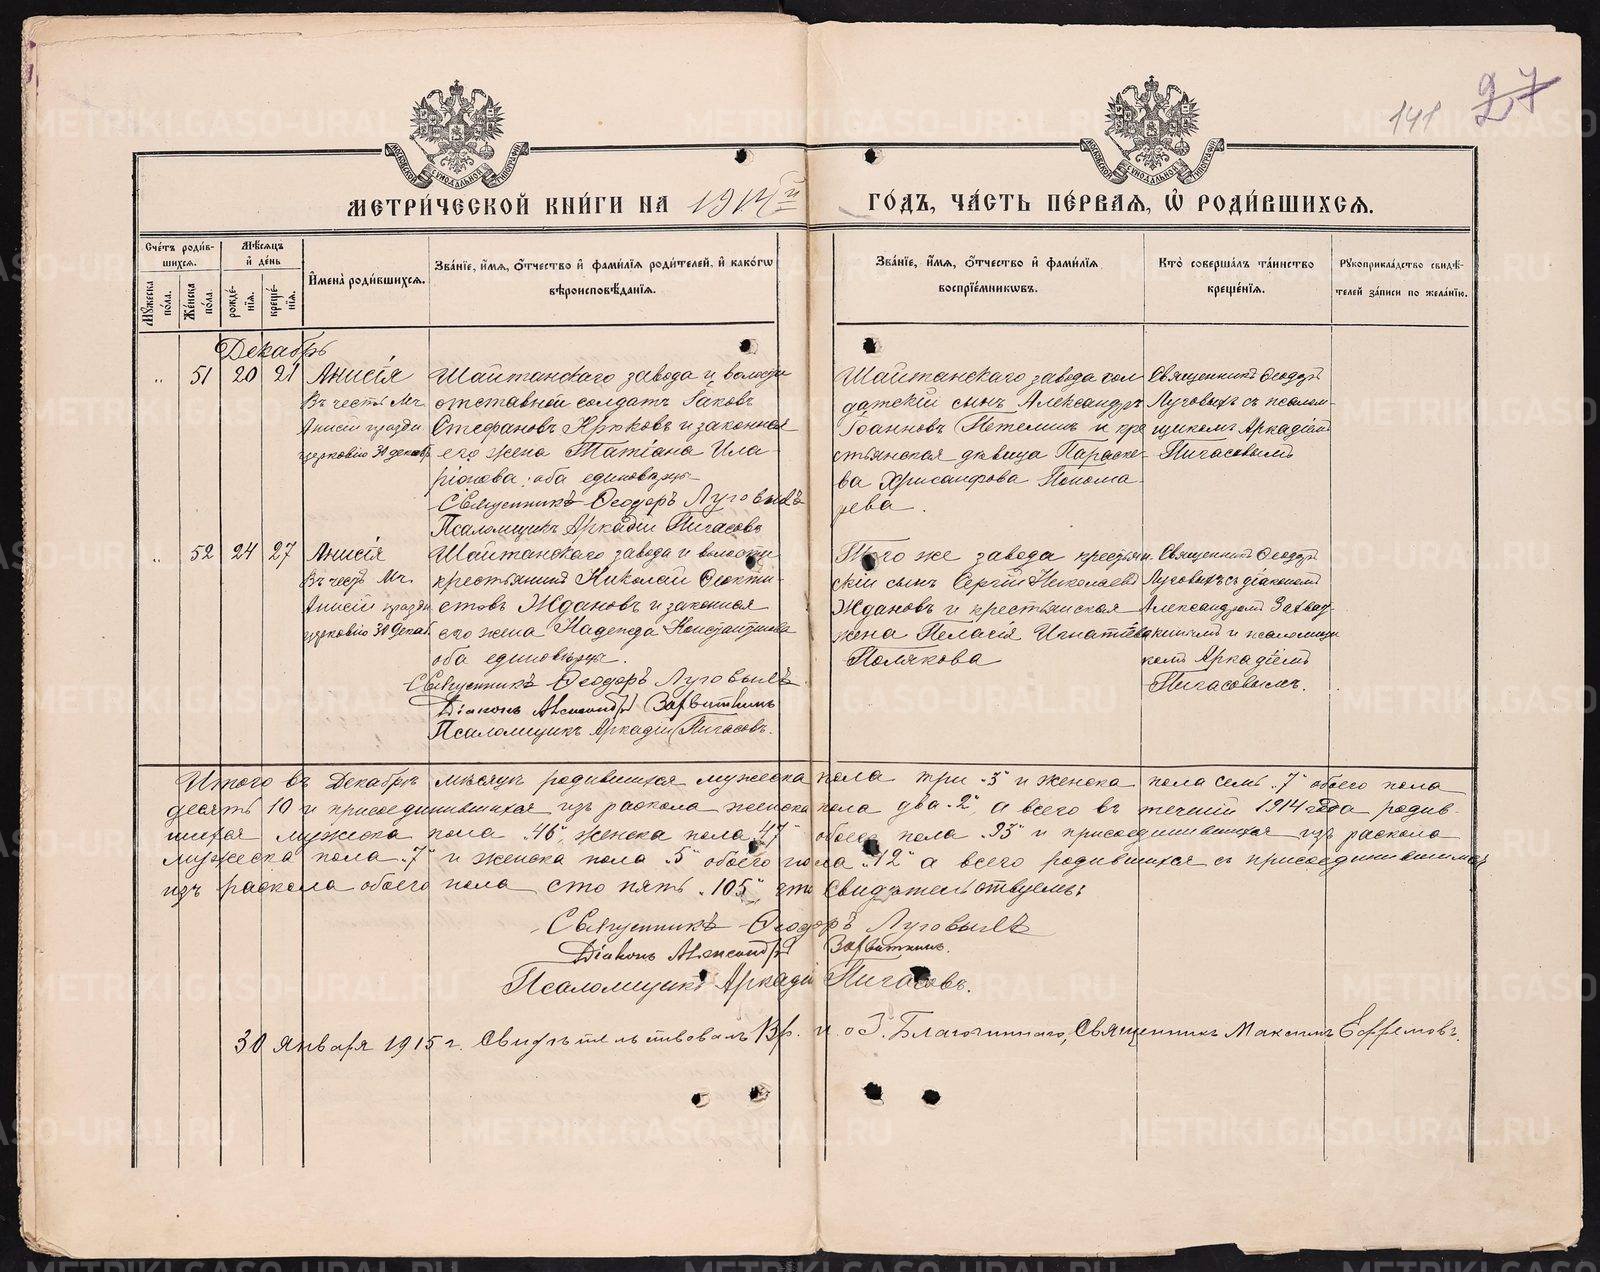 141 27
МОСКОВСКОЙ СѴНОДАЛЬНОЙ ТИПОГРАФІИ
МОСКОВСКОЙ СѴНОДАЛЬНОЙ ТИПОГРАФІИ
МЕТРИ́ЧЕСКОЙ КНИ́ГИ НА 1914й ГО́ДЪ, ЧА́СТЬ ПЕ́РВАѦ, Ѡ҆ РОДИ́ВШИХСѦ.
Сче́тъ роди́в-
шихсѧ.
Мꙋ́жеска по́ла.
Же́нска по́ла.
Мѣ́сѧцъ
и҆ де́нь
рожде́-
нїѧ.
креще́-
нїѧ.
И҆мена̀ роди́вшихсѧ.
Зва́нїе, и҆́мѧ, ѻ҆́тчество и҆ фами́лїѧ роди́телей, и҆ како́гѡ
вѣроисповѣ́данїѧ.
Зва́нїе, и҆́мѧ, ѻ҆́тчество и҆ фами́лїѧ
воспрїе́мникѡвъ.
Кто̀ соверша́лъ та́инство
креще́нїѧ.
Рꙋкоприкла́дство свидѣ́-
телей за́писи по жела́нїю.
Декабрь
" 51 20 21
Анисія
Въ честь Мч.
Анисіи праздн.
церковію 30 декабр
Шайтанскаго завода и волости
отставной солдатъ Іаковъ
Стефановъ Крюковъ и законная
его жена Татіана Ила-
ріонова; оба единовѣрцы
Священникъ Ѳеодоръ Луговыхъ
Псаломщикъ Аркадій Пигасовъ
Шайтанскаго завода сол-
датскій сынъ Александръ
Іоанновъ Петелинъ и кре
стьянская дѣвица Параске-
ва Хрисанфова Понома-
рева.
Священникъ Ѳеодоръ
Луговыхъ съ псалом-
щикомъ Аркадіемъ
Пигасовымъ
" 52 24 27
Анисія
Въ честь Мч.
Анисіи праздн
церковію 30 Декаб.
Шайтанскаго завода и волости
крестьянинъ Николай Ѳеокти-
стовъ Ждановъ и законная
его жена Надежда Константинова
оба единовѣрцы.
Священникъ Ѳеодоръ Луговыхъ
Діаконъ Александръ
Псаломщикъ Аркадій Пигасовъ.
Того же завода крестьян
скій сынъ Сергій Николаевъ
Ждановъ и крестьянская
жена Пелагія Игнатіева
Полякова
Священникъ Ѳеодоръ
Луговыхъ съ діакономъ
Александромъ
и псаломщи
комъ Аркадіемъ
Пигасовымъ.
Итого въ Декабрѣ мѣсяцѣ родившихся мужеска пола три "3" и женска пола семь "7" обоего пола
десять 10 и присоединившихся изъ раскола женска пола два "2", а всего въ теченіи 1914 года родив-
шихся мужеска пола "46", женска пола "47" обоего пола "93" и присоединившихся изъ раскола
мужеска пола "7" и женска пола "5" обоего пола "12" а всего родившихся съ присоединившимися
изъ раскола обоего пола сто пять "105", что свидѣтельствуемъ:
Священникъ Ѳеодоръ Луговыхъ
Діаконъ Александръ
Псаломщикъ Аркадій Пигасовъ.
30 января 1915 г. Свидѣтельствовалъ Вр. и. об. Благочиннаго, Священникъ Максимъ Ефремовъ.
METRIKI.GASO-URAL.RU